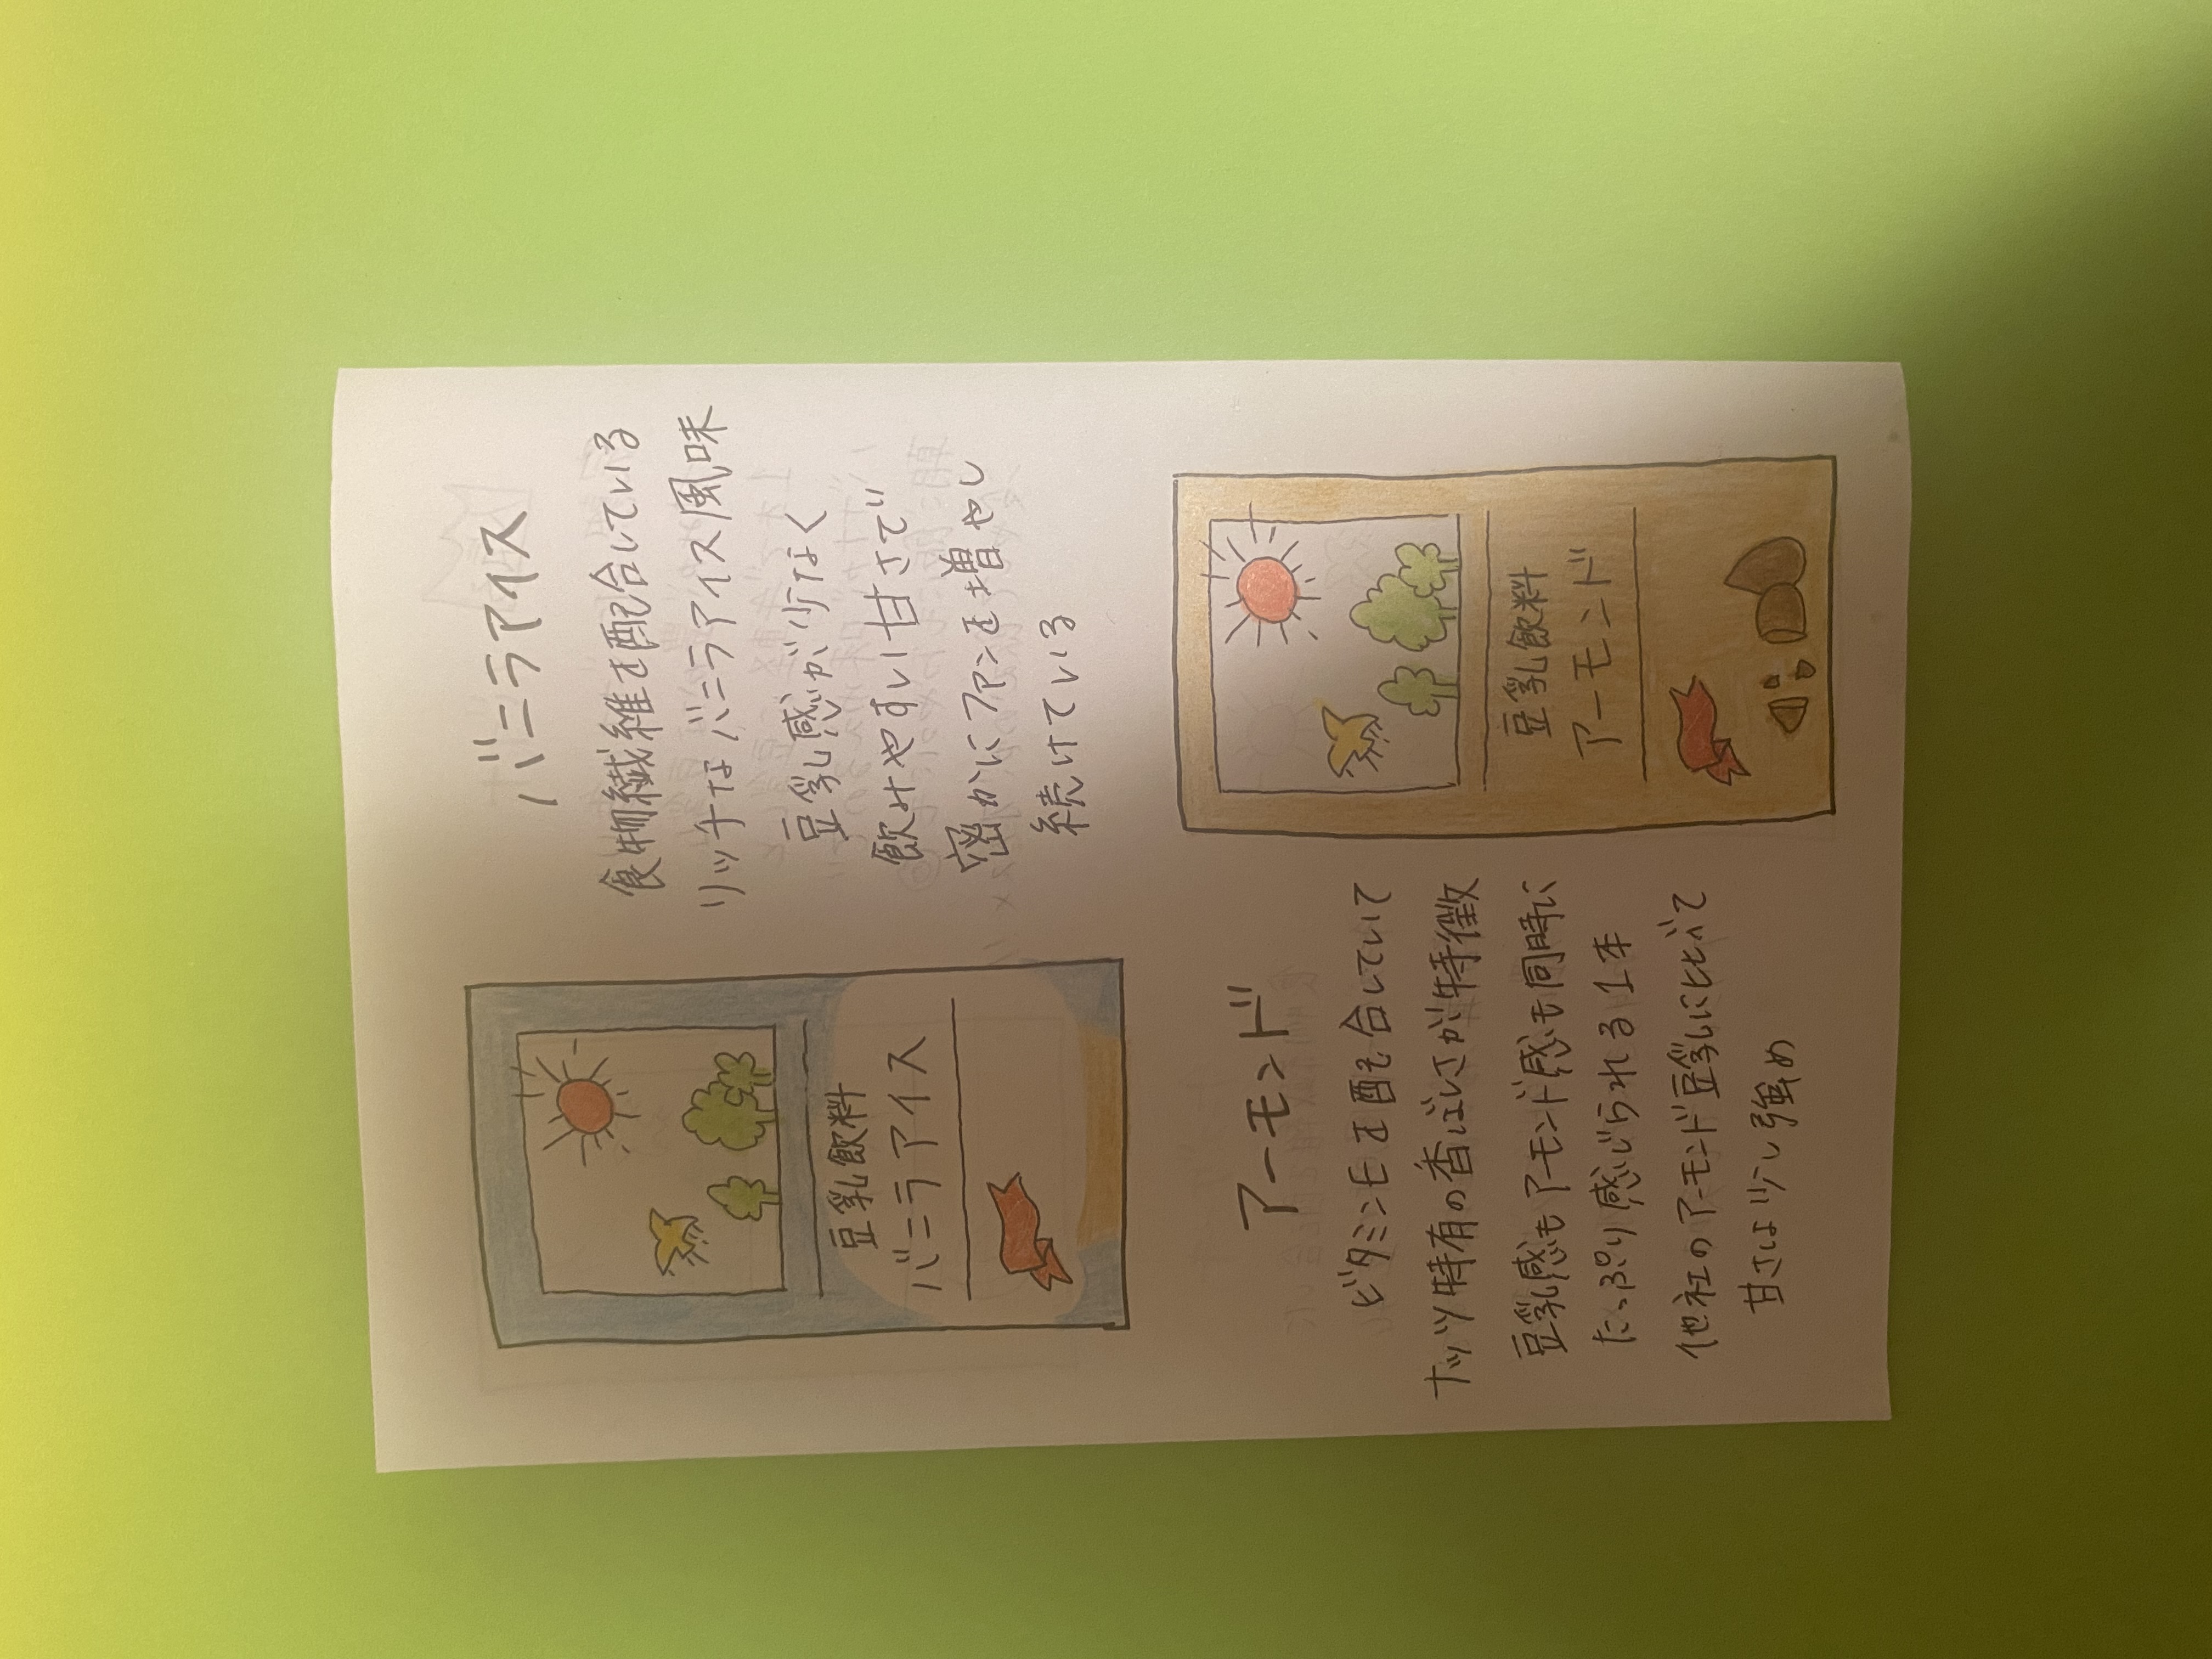 バニラアイス
食物繊維を配合している
リッチなバニラアイス風味
豆乳感が少なく
飲みやすい甘さで
密かにファンを増やし
続けている
豆乳飲料
バニラアイス
アーモンド
ビタミンEを配合していて
ナッツ特有の香ばしさが特徴
豆乳感もアーモンド感も同時に
たっぷり感じられる1本
他社のアーモンド豆乳に比べて
甘さは少し強め
豆乳飲料
アーモンド